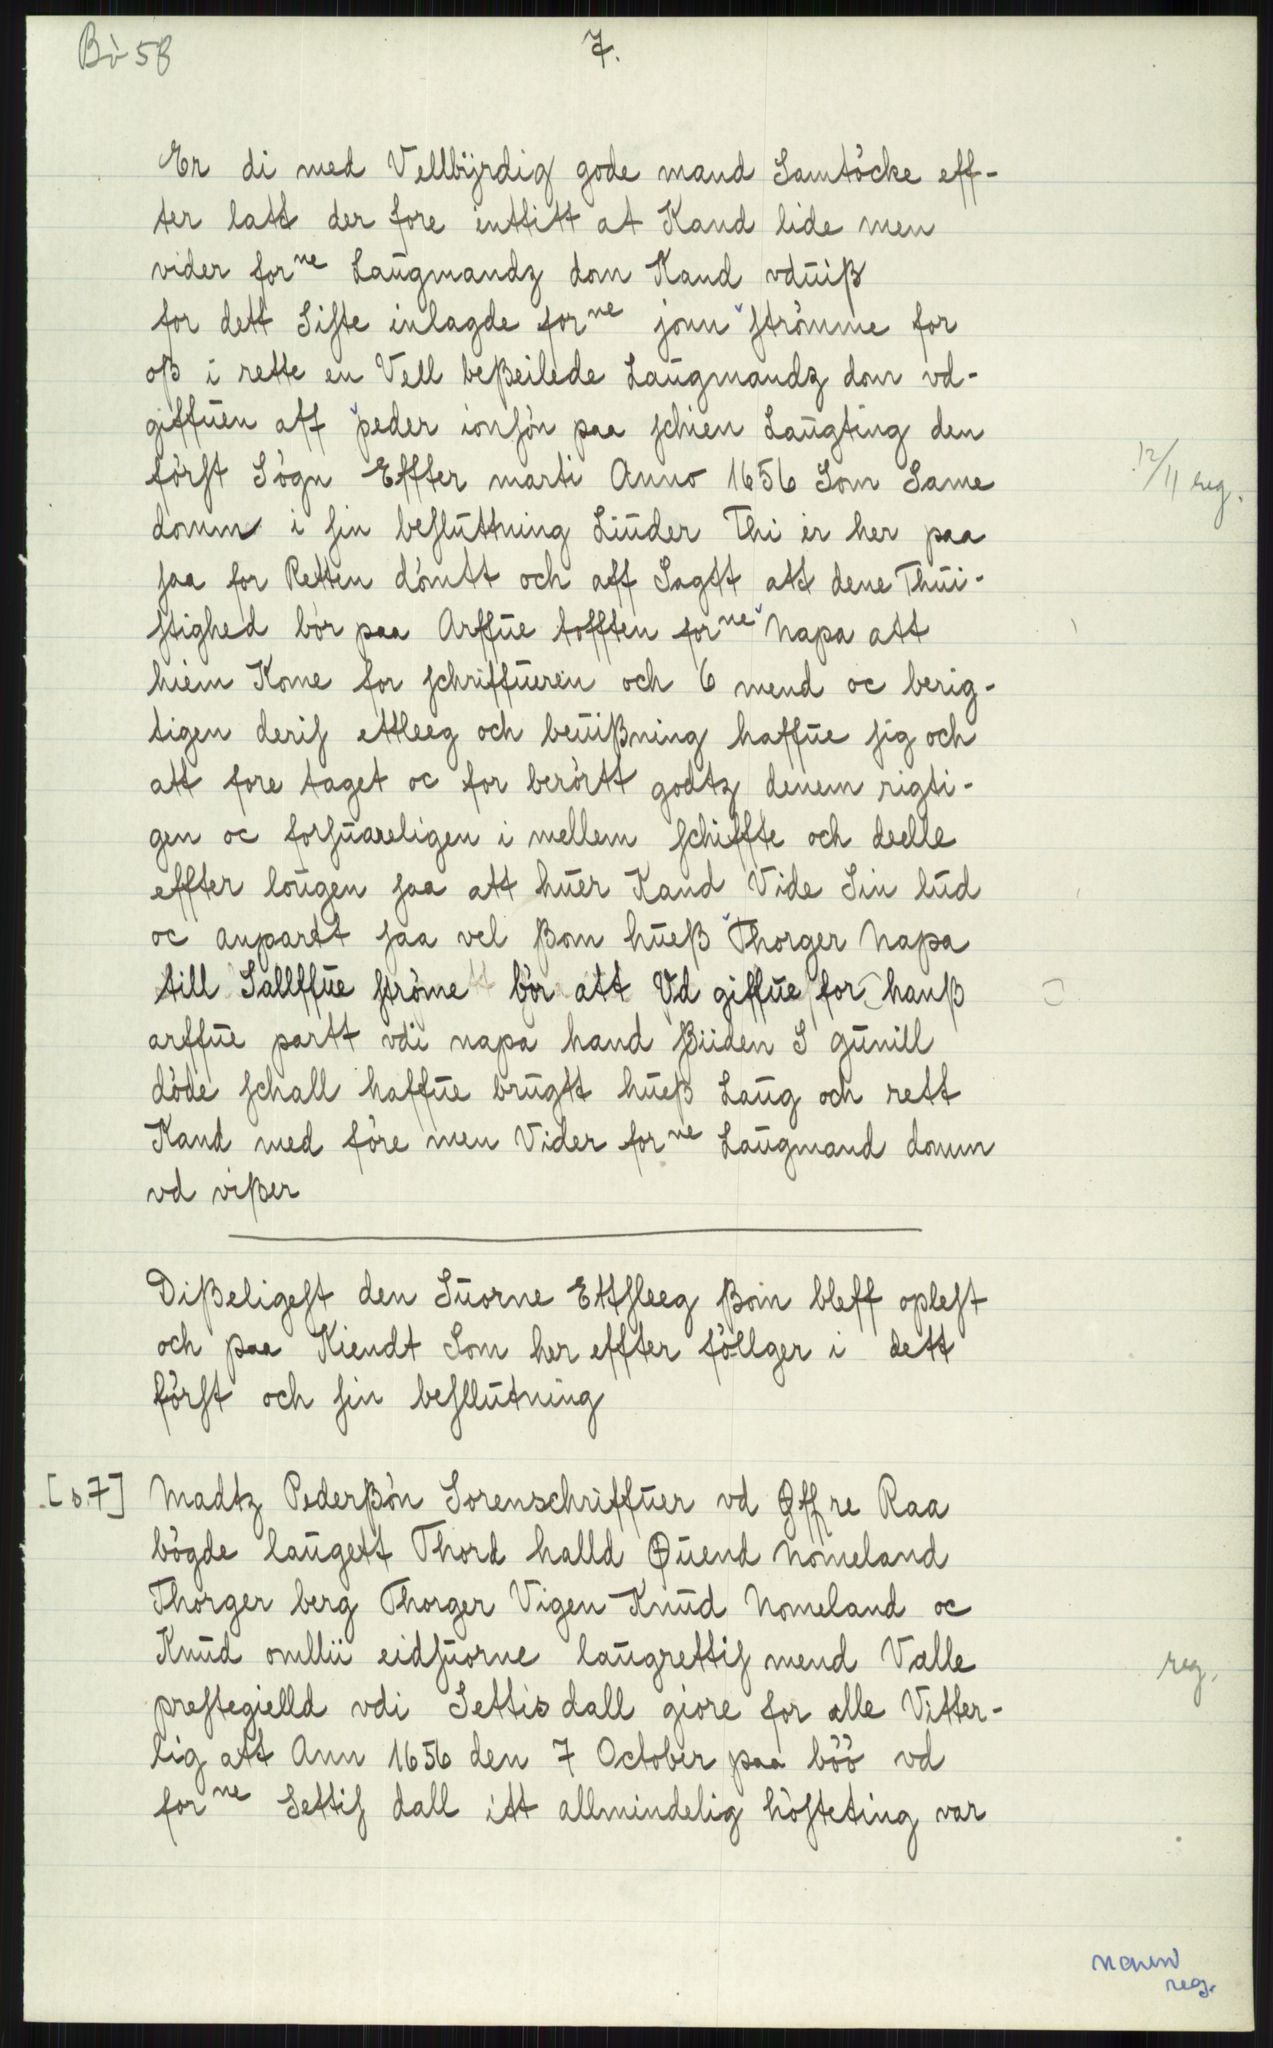 Bö 58
7.
Er di med Vellbÿrdig gode mand Samtöcke eff-
ter latt der fore inttitt at Kand lide men
vider forne Laugmandz dom Kand vduiß
for dett Siste inlagde forne jonn strömme for
oß i rette en Vell beßeilede Laugmandz dom vd-
giffuen aff peder ionsön paa schien Laugting den
först Sögn Effter marti Anno 1656 Som Same
domm i sin besluttning Liuder Thi er her paa
saa for Retten dömtt och aff Sagtt att dene Thui-
stighed bör paa Arffue tofften forne Napa att
hiem Kome for schriffueren och 6 mend oc berig-
tigen deris ettleeg och beuißning haffue sig och
att fore taget oc for berörtt godtz denem rigti-
gen oc forsuareligen i mellem schiffte och deelle
effter lougen saa att huer Kand Vide Sin lud
oc anpartt saa vel ßom hueß Thorger Napa
till Sallffue ströme bör att Vd giffue for hanß
arffue partt vdi napa hand ßiiden S gunill
döde schall haffue brugtt hueß Laug och rett
Kand med före men Vider forne Laugmand domm
vd vißer
Dißeligest den Suorne Ettsleeg ßom bleff oplest
och paa Kiendt Som her effter föllger i dett
först och sin besllutning
[s.7] Madtz Pederßön Sorenschriffuer vd Øffre Raa
bögde laugett Thord halld Øuend Nomeland
Thorger berg Thorger Vigen Knud Nomeland oc
Knud omllii eidsuorne laugrettis mend Valle
prestegielld vdi Settis dall giore for alle Vitter-
lig att Ann 1656 den 7 October paa böö vd
forne Settis dall itt allmindelig hösteting var
12/11 reg.
reg.
navn
reg.